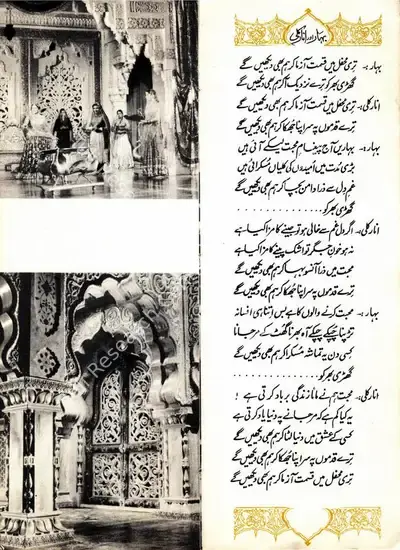 بہار اور انارکلی
بہار :- تری محفل میں قسمت آزما کر ہم بھی دیکھیں گے
گھڑی بھر کو ترے نزدیک آکر ہم بھی دیکھیں گے
انارکلی :- تری محفل میں قسمت آزما کر ہم بھی دیکھیں گے
ترے قدموں پہ سر اپنا جھکا کر ہم بھی دیکھیں گے
بہار :- بہاریں آج پیغامِ محبت لے کے آئی ہیں
بڑی مدت میں اُمیدوں کی کلیاں مسکرائی ہیں
غمِ دل سے ذرا دامن بچا کر ہم بھی دیکھیں گے
گھڑی بھر کو ..........
انارکلی :- اگر دل غم سے خالی ہو تو جینے کا مزا کیا ہے
نہ ہو خونِ جگر تو اشک پینے کا مزا کیا ہے
محبت میں ذرا آنسو بہا کر ہم بھی دیکھیں گے
ترے قدموں پہ سر اپنا جھکا کر ہم بھی دیکھیں گے
بہار :- محبت کرنے والوں کا ہے بس اِتنا ہی افسانہ
تڑپنا چپکے چپکے آہ بھرنا گھُٹ کے مر جانا
کسی دن یہ تماشہ مسکرا کر ہم بھی دیکھیں گے
گھڑی بھر کو ..........
انارکلی :- محبت ہم نے مانا زندگی برباد کرتی ہے !
یہ کیا کم ہے کہ مر جانے پہ دنیا یاد کرتی ہے
کسی کے عشق میں دنیا لٹا کر ہم بھی دیکھیں گے
ترے قدموں پہ سر اپنا جھکا کر ہم بھی دیکھیں گے
تری محفل میں قسمت آزما کر ہم بھی دیکھیں گے
Research